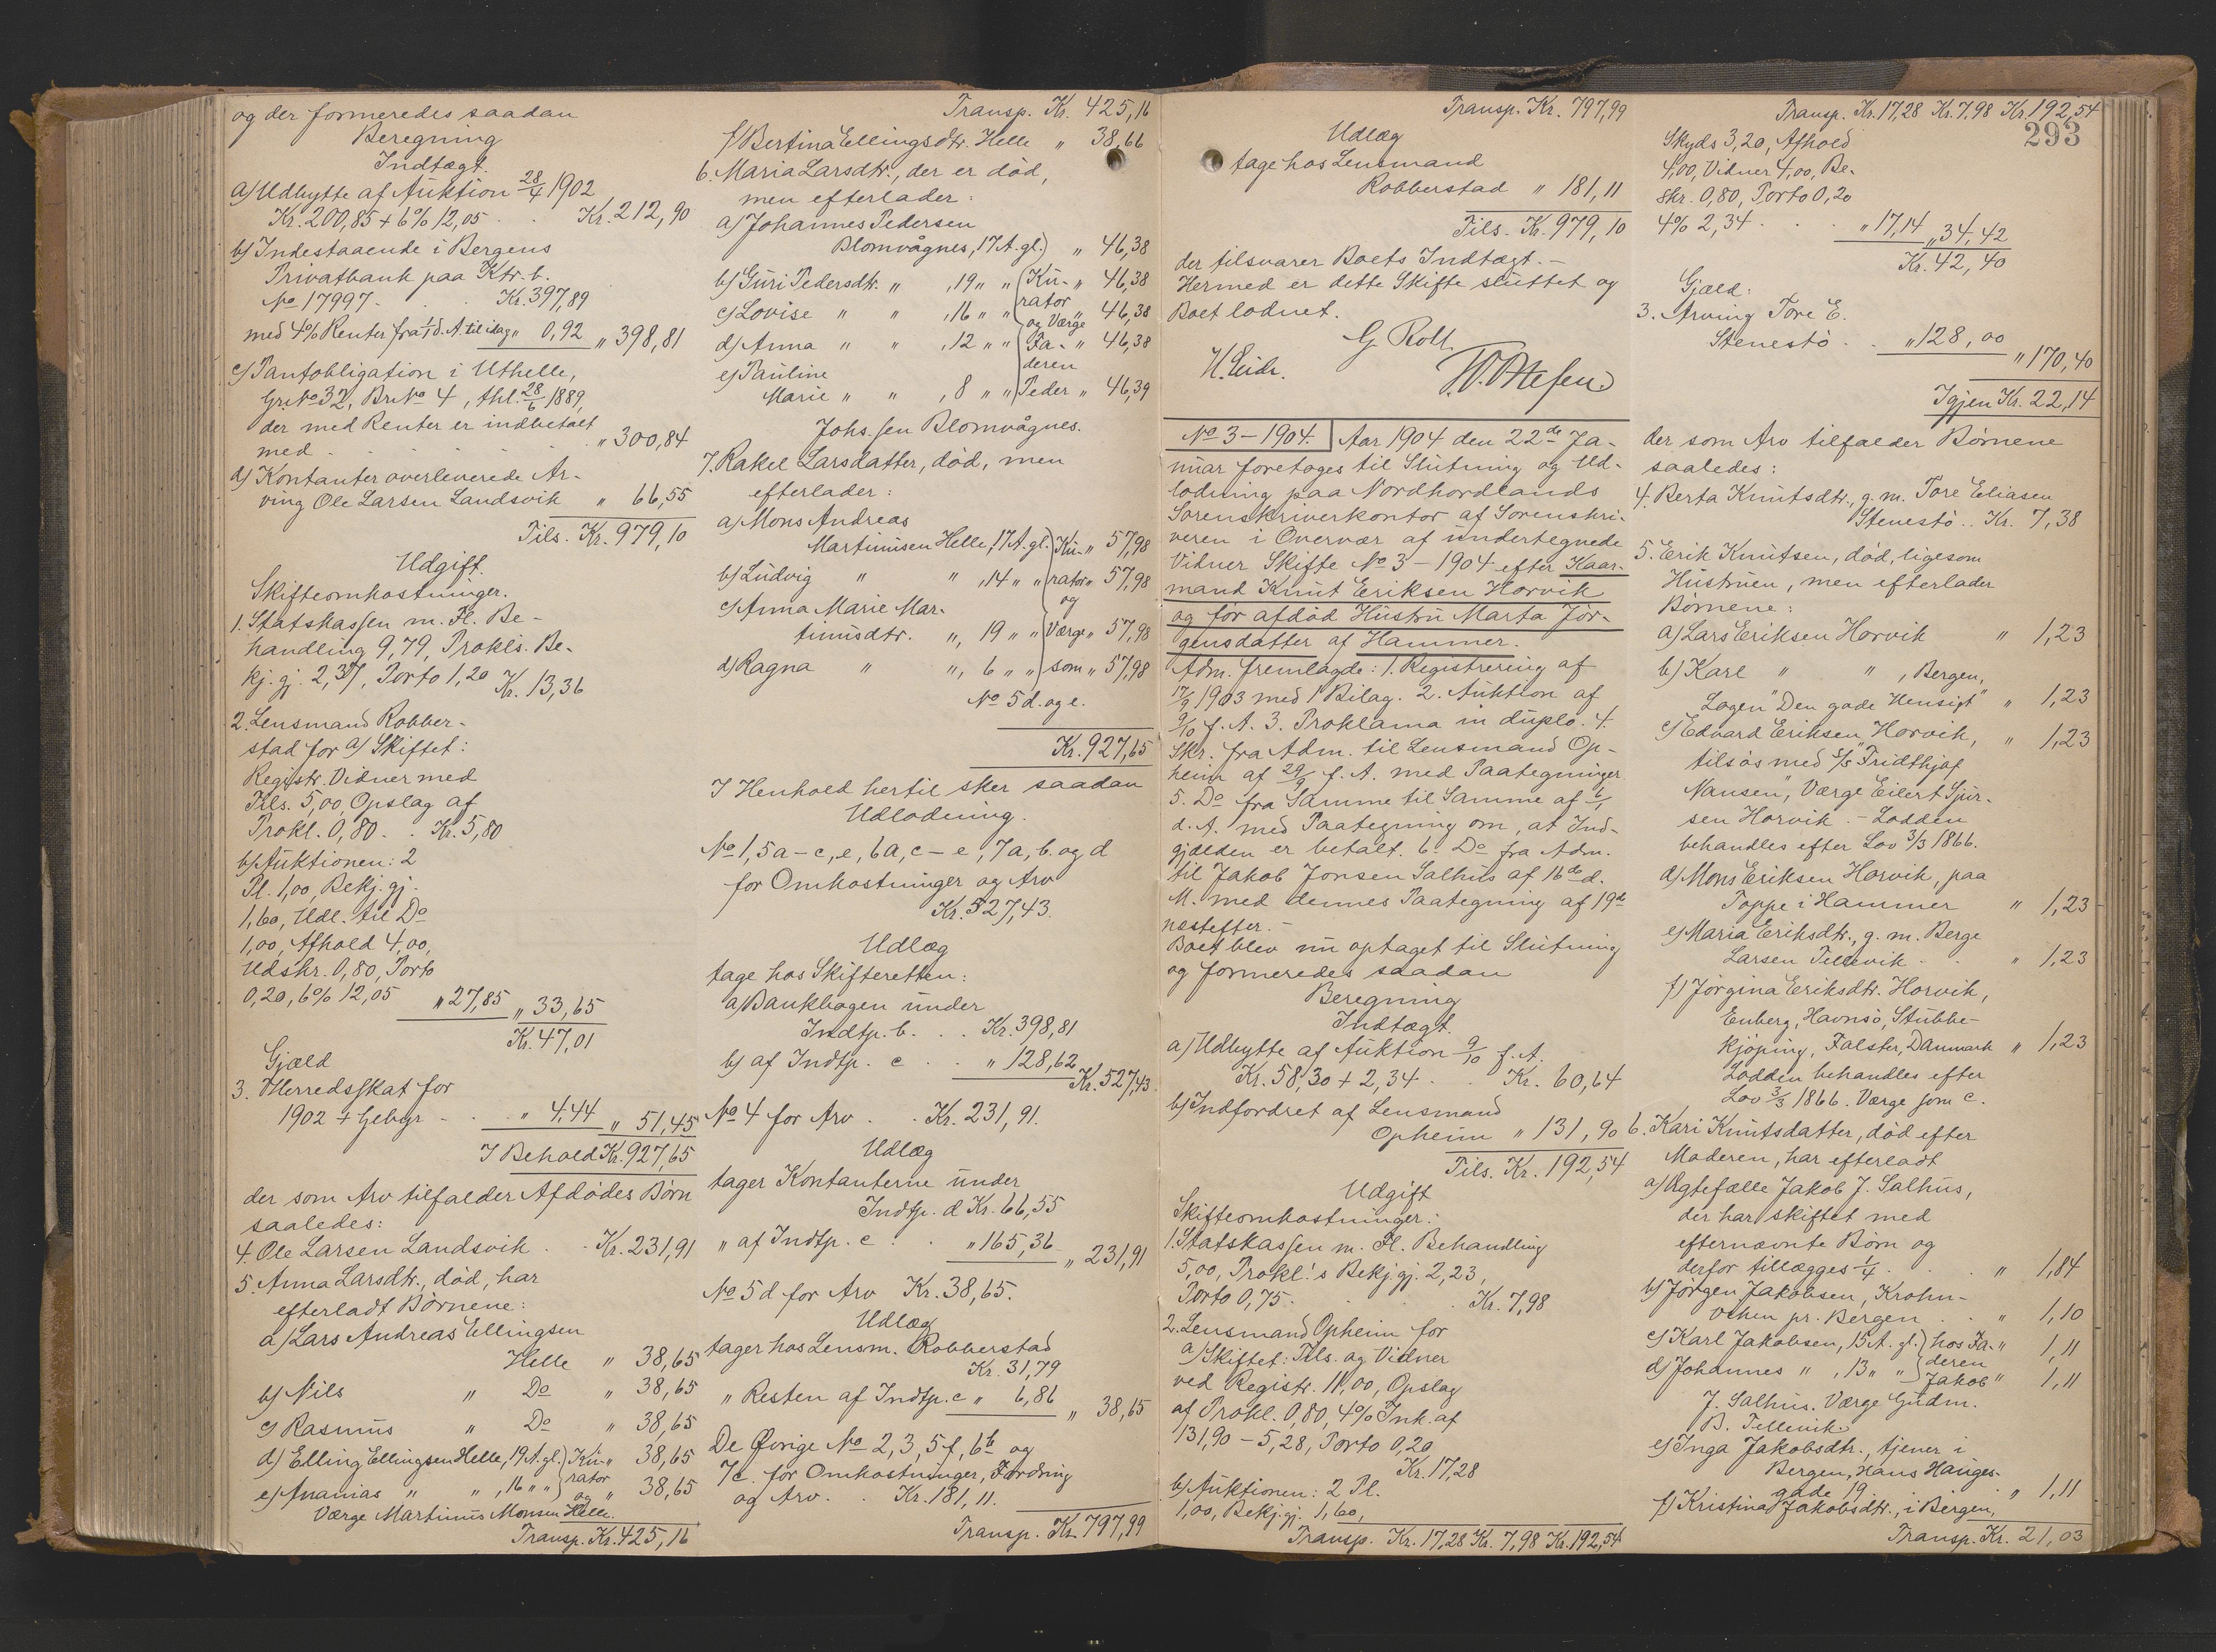 og der formeredes saadan
Beregning
Indtægt.
a) Udbytte af Auktion 28/4 1902
Kr. 200,85 + 6% 12,05 . . Kr. 212,90
b) Indestaaende i Bergens
Privatbank paa Ktr. b.
No 17997 . . . Kr. 397,89
med 4% Renter fra 1/1 d. A. til idag " 0,92 " 398,81
c) Pantobligation i Uthelle,
Gr. No 32, Br. No 4, thl. 28/6 1889,
der med Renter er indbetalt
med . . . . . " 300,84
d) Kontanter overleverede Ar-
ving Ole Larsen Landsvik " 66,55
Tils. Kr. 979,10
Udgift.
Skifteomkostninger.
1. Statskassen m. Fl. Be-
handling 9,79, Prokl's. Be-
kj. gj. 2,37, Porto 1,20 Kr. 13,36
2. Lensmand Robber-
stad for a) Skiftet:
Registr. Vidner med
Tils. 5,00, Opslag af
Prokl. 0,80 . . Kr. 5,80
b) Auktionen: 2
Pl. 1,00, Bekj. gj.
1,60, Udl. til Do
1,00, Afhold 4,00,
Udskr. 0,80, Porto
0,20, 6% 12,05 " 27,85 " 33,65
Kr. 47,01
Gjæld
3. Herredsskat for
1902 + Gebyr . . " 4,44 " 51,45
I Behold Kr. 927,65
der som Arv tilfalder Afdødes Børn
saaledes:
4. Ole Larsen Landsvik . . Kr. 231,91
5. Anna Larsdtr., død, har
efterladt Børnene:
a) Lars Andreas Ellingsen
Helle " 38,65
b) Nils " Do " 38,65
c) Rasmus " Do " 38,65
d) Elling Ellingsen Helle, 19 A. gl. Ku- " 38,65
e) Ananias " " , 16 " " rator og " 38,65
Værge Martinus Monsen Helle.
Transp. Kr. 425,16
Transp. Kr. 425,16
f) Bertina Ellingsdtr. Helle " 38,66
6. Maria Larsdtr., der er død,
men efterlader:
a) Johannes Pedersen
Blomvågnes, 17 A. gl. " 46,38
b) Guri Pedersdtr. " , 19 " " Ku- " 46,38
c) Lovise " " , 16 " " rator og Værge " 46,38
d) Anna " " , 12 " " Fa- " 46,38
e) Pauline deren
Marie " " , 8 " " Peder " 46,39
Johs.sen Blomvågnes.
7. Rakel Larsdatter, død, men
efterlader:
a) Mons Andreas
Martinusen Helle, 17 A. gl. Ku- " 57,98
b) Ludvig " " , 14 " " rator " 57,98
c) Anna Marie Mar- og
tinusdtr. " , 19 " " Værge " 57,98
d) Ragna " " , 6 " " som " 57,98
No 5 d. og e.
Kr. 927,65
I Henhold hertil sker saadan
Udlodning.
No 1, 5a-c, e, 6a, c-e, 7a, b. og d
for Omkostninger og Arv
Kr. 527,43.
Udlæg
tage hos Skifteretten:
a) Bankbogen under
Indtp. b. . . Kr. 398,81
b) af Indtp. c . . " 128,62
Kr. 527,43.
No 4 for Arv . . Kr. 231,91.
Udlæg
tager Kontanterne under
Indtp. d Kr. 66,55
" af Indtp. c . . " 165,36 " 231,91
No 5 d for Arv Kr. 38,65.
Udlæg
tager hos Lensm. Robberstad
Kr. 31,79
" Resten af Indtp. c " 6,86 " 38,65
De Øvrige No 2, 3, 5 f, 6 b og
7 c. for Omkostninger, Fordring
og Arv . . Kr. 181,11.
Transp. Kr. 797,99
Transp. Kr. 797,99
Udlæg
tage hos Lensmand
Robberstad " 181,11
Tils. Kr. 979,10
der tilsvarer Boets Indtægt. -
Hermed er dette Skifte sluttet og
Boet lodnet.
G. Roll
H. Eide.
No 3 - 1904. Aar 1904 den 22de Ja-
nuar foretoges til Slutning og Ud-
lodning paa Nordhordlands
Sorenskriverkontor af Sorenskri-
veren i Overvær af undertegnede
Vidner Skifte No 3 - 1904 efter Kaar-
mand Knut Eriksen Horvik
og før afdød Hustru Marta Jør-
gensdatter af Hammer.
Adm. fremlagde: 1. Registrering af
17/9 1903 med 1 Bilag. 2. Auktion af
9/10 f. A. 3. Proklama in duplo. 4.
Skr. fra Adm. til Lensmand Op-
heim af 29/9 f. A. med Paategninger
5. Do fra Samme til Samme af 6/1
d. A. med Paategning om, at Ind-
gjælden er betalt. 6. Do fra Adm.
til Jakob Jonsen Salhus af 16de d.
M. med dennes Paategning af 19de
næstefter. -
Boet blev nu optaget til Slutning
og formeredes saadan
Beregning
Indtægt.
a) Udbytte af Auktion 9/10 f. A.
Kr. 58,30 + 2,34 . . Kr. 60,64
b) Indfordret af Lensmand
Opheim " 131,90
Tils. Kr. 192,54
Udgift
Skifteomkostninger:
1. Statskassen m. Fl. Behandling
5,00, Prokl.'s Bekj. gj. 2,23,
Porto 0,75 . . . Kr. 7,98
2. Lensmand Opheim for
a) Skiftet: Tils. og Vidner
ved Registr. 11,00, Opslag
af Prokl. 0,80, 4% Ink. af
131,90 - 5,28, Porto 0,20
Kr. 17,28
b) Auktionen: 2 Pl.
1,00, Bekj. gj. 1,60,
Transp. Kr. 17,28 Kr. 7,98 Kr. 192,54
Transp. Kr. 17,28 Kr. 7,98 Kr. 192,54
293
Skyds 3,20, Afhold
4,00, Vidner 4,00, Be-
skr. 0,80, Porto 0,20
4% 2,34 . . . " 17,14 " 34,42
Kr. 42,40
Gjæld:
3. Arving Tore E.
Stenestø . . " 128,00
" 170,40
Igjen Kr. 22,14
der som Arv tilfalder Børnene
saaledes:
4. Berta Knutsdtr., g. m. Tore Eliasen
Stenestø . . Kr. 7,38
5. Erik Knutsen, død, ligesom
Hustruen, men efterlader
Børnene:
a) Lars Eriksen Horvik " 1,23
b) Karl " " , Bergen,
Logen "Den gode Hensigt" " 1,23
c) Edvard Eriksen Horvik, " 1,23
tilsøs med S/S "Fridthjof
Nansen", Værge Eilert Sjur-
sen Horvik. - Lodden
behandles efter Lov 3/3 1866.
d) Mons Eriksen Horvik, paa
Toppe i Hammer " 1,23
e) Maria Eriksdtr., g. m. Berge
Larsen Tellevik . . " 1,23
f) Jørgina Eriksdtr. Horvik,
Enberg, Havnsø, Stubbe-
kjøping, Falster, Danmark " 1,23
Lodden behandles efter
Lov 3/3 1866. Værge som c.
6. Kari Knutsdatter, død efter
Moderen, har efterladt
a) Ægtefælle Jakob J. Salhus,
der har skiftet med
efternævnte Børn og
derfor tillægges 1/4 . . . " 1,84
b) Jørgen Jakobsen, Krohn-
viken pr. Bergen . . " 1,10
c) Karl Jakobsen, 15 A. gl. hos Fa- " 1,11
d) Johannes " , 13 " " deren Jakob " 1,11
J. Salhus. Værge Gudm.
B. Tellevik.
e) Inga Jakobsdtr., tjener i
Bergen, Hans Hauges-
gade 19 " 1,11
f) Kristina Jakobsdtr., i Bergen,
Transp. Kr. 21,03